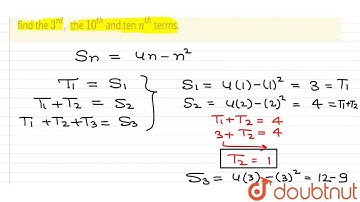 find the 3rd, the 10th and ten nth terms.
Sn = 4n - n²
T1 = S1
T1 + T2 = S2
T1 + T2 + T3 = S3
S1 = 4(1) - (1)² = 3 = T1
S2 = 4(2) - (2)² = 4 = T1+T2
T1 + T2 = 4
3 + T2 = 4
T2 = 1
S3 = 4(3) - (3)² = 12 - 9
doubtnut